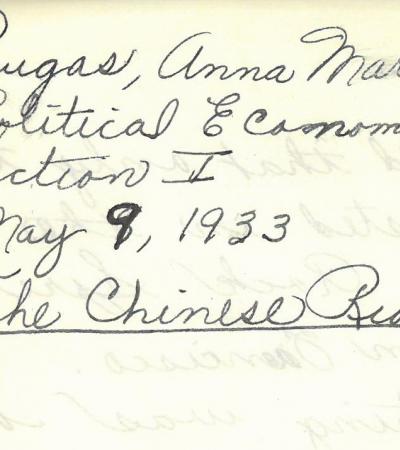 ugas, Anna Mar
olitical Econom
ction I
May 9, 1933
The Chinese